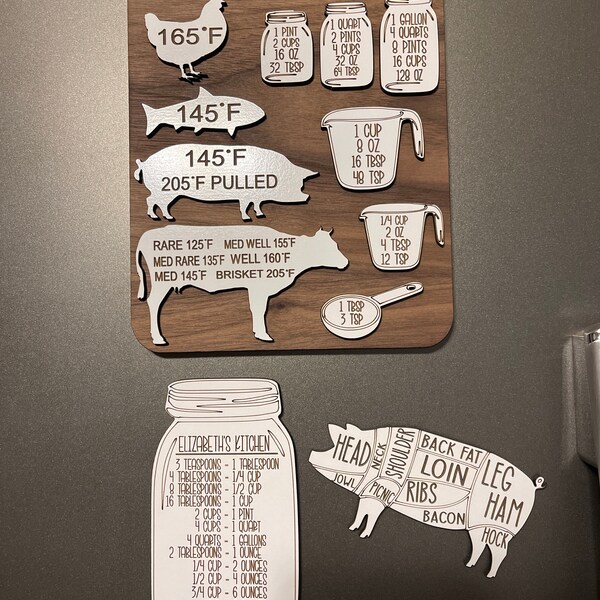 165°F
1 PINT
2 CUPS
16 OZ
32 TBSP
1 QUART
2 PINTS
4 CUPS
32 OZ
64 TBSP
1 GALLON
4 QUARTS
8 PINTS
16 CUPS
128 OZ
145°F
145°F
205°F PULLED
1 CUP
8 OZ
16 TBSP
48 TSP
1/4 CUP
2 OZ
4 TBSP
12 TSP
RARE 125°F MED WELL 155°F
MED RARE 135°F WELL 160°F
MED 145°F BRISKET 205°F
1 TBSP
3 TSP
ELIZABETH'S KITCHEN
3 TEASPOONS - 1 TABLESPOON
4 TABLESPOONS - 1/4 CUP
8 TABLESPOONS - 1/2 CUP
16 TABLESPOONS - 1 CUP
2 CUPS - 1 PINT
4 CUPS - 1 QUART
4 QUARTS - 1 GALLONS
2 TABLESPOONS - 1 OUNCE
1/4 CUP - 2 OUNCES
1/2 CUP - 4 OUNCES
3/4 CUP - 6 OUNCES
HEAD
JOWL
NECK
SHOULDER
PICNIC
BACK FAT
LOIN
RIBS
BACON
LEG
HAM
HOCK